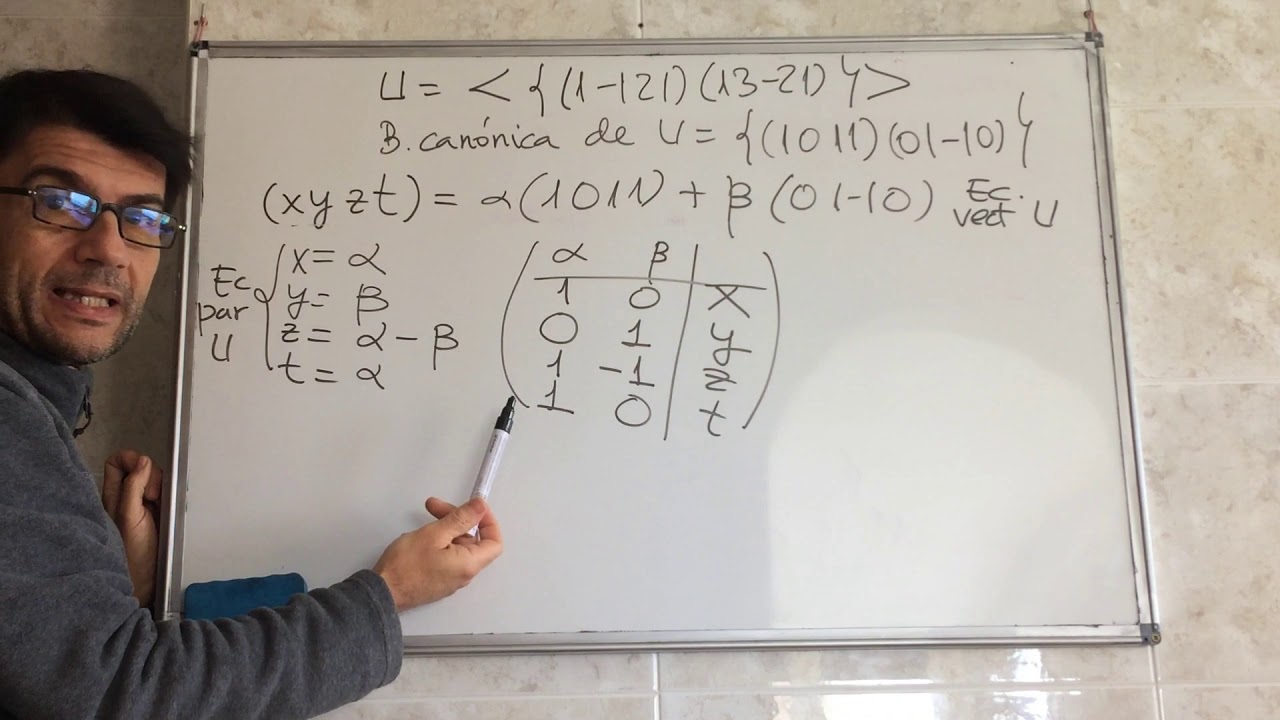 U = < { (1 -1 2 1) (1 3 -2 1) } >
B. canónica de U = { (1 0 1 1) (0 1 -1 0) }
(x y z t) = α (1 0 1 1) + β (0 1 -1 0) Ec. vect U
Ec par U
x = α
y = β
z = α - β
t = α
α β
1 0 x
0 1 y
1 -1 z
1 0 t